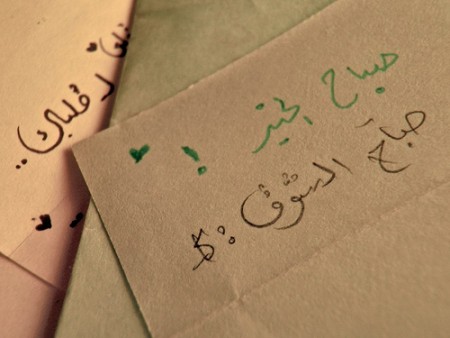 صباح الخير ! ♥
صباح الشوق :$
لـ قلبك ..